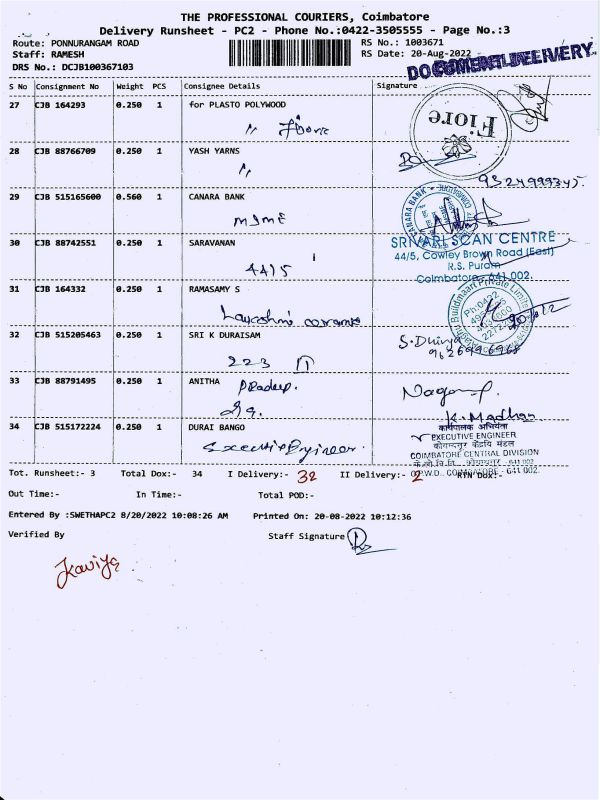 THE PROFESSIONAL COURIERS, Coimbatore
Delivery Runsheet - PC2 - Phone No.:0422-3505555 - Page No.:3
Route: PONNURANGAM ROAD
RS No.: 1003671
Staff: RAMESH
RS Date: 20-Aug-2022
DRS No.: DCJB100367103
S No Consignment No Weight PCS Consignee Details Signature
27 CJB 164293 0.250 1 for PLASTO POLYWOOD
Fiore
28 CJB 88766709 0.250 1 YASH YARNS
9324999345.
29 CJB 515165600 0.560 1 CANARA BANK
CANARA BANK
MSME
30 CJB 88742551 0.250 1 SARAVANAN
SRIVARI SCAN CENTRE
44/5, Cowley Brown Road (East)
R.S. Puram
Coimbatore- 641 002.
44/5
31 CJB 164332 0.250 1 RAMASAMY S
Buildmaart Private Limited
Ph:0422
32 CJB 515205463 0.250 1 SRI K DURAISAM
S. Dhivya
223
33 CJB 88791495 0.250 1 ANITHA
Pradeep.
K. Madhan
34 CJB 515172224 0.250 1 DURAI BANGO
कार्यपालक अभियंता
EXECUTIVE ENGINEER
कोयम्बत्तूर केंद्रीय मंडल
COIMBATORE CENTRAL DIVISION
Executive Engineer
C.P.W.D., COIMBATORE - 641 002.
Tot. Runsheet:- 3 Total Dox:- 34 I Delivery:- 32 II Delivery:- 2 RTN Dox:-
Out Time:- In Time:- Total POD:-
Entered By :SWETHAPC2 8/20/2022 10:08:26 AM Printed On: 20-08-2022 10:12:36
Verified By Staff Signature
Kaviya